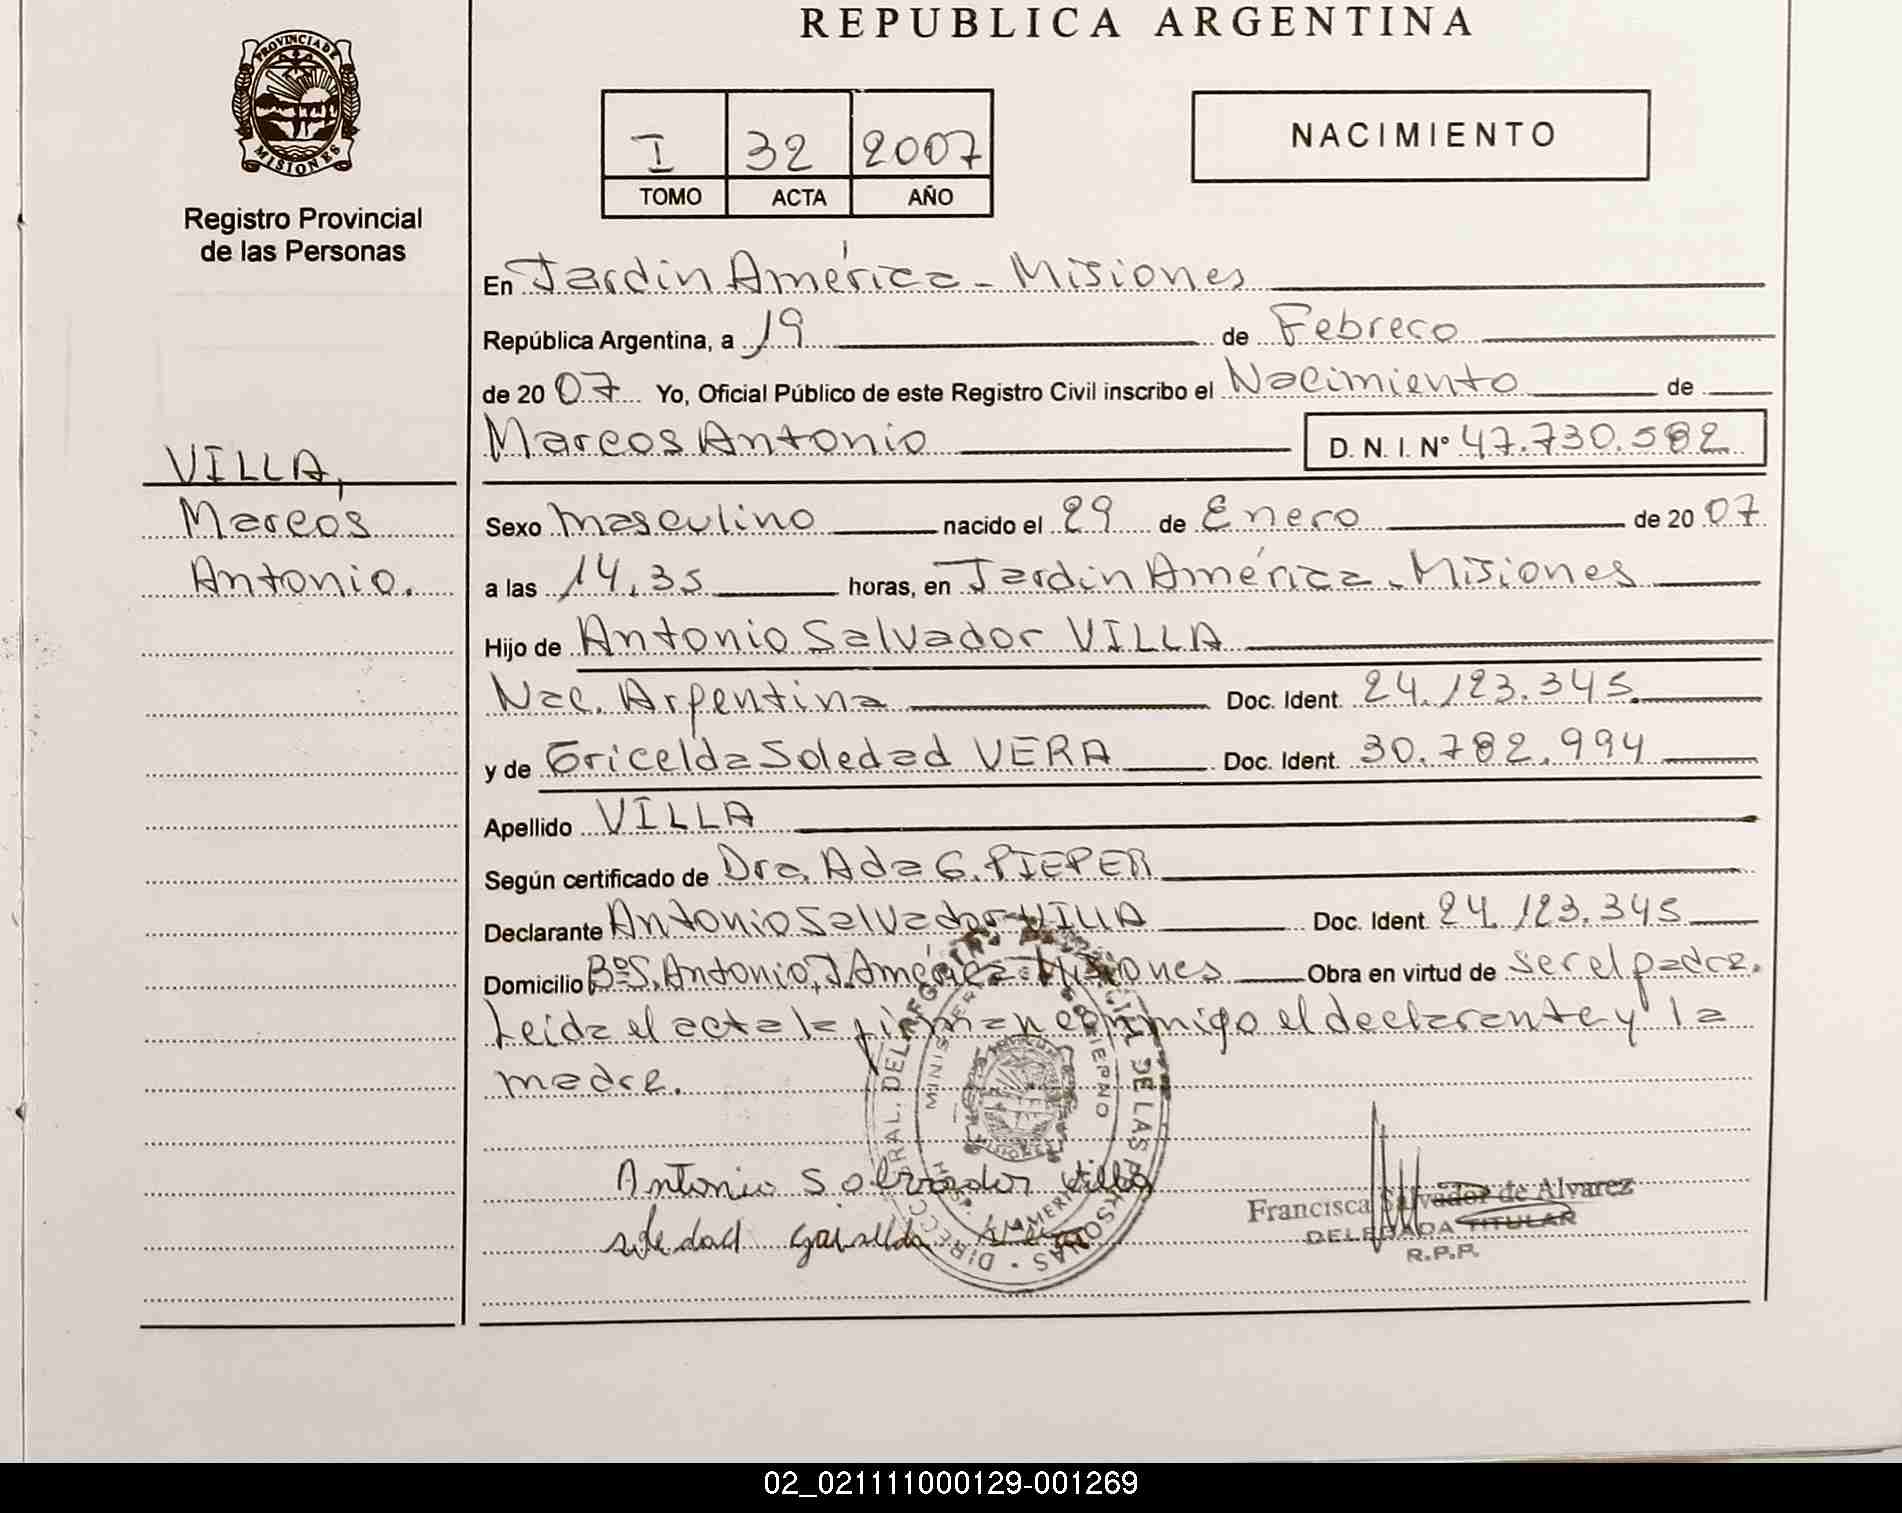 REPUBLICA ARGENTINA
PROVINCIA DE
MISIONES
Registro Provincial
de las Personas
I 32 2007
TOMO ACTA AÑO
NACIMIENTO
En Jardín América - Misiones
República Argentina, a 19 de Febrero
de 20 07 Yo, Oficial Público de este Registro Civil inscribo el Nacimiento de
Marcos Antonio D. N. I. N° 47.730.582
VILLA,
Marcos
Antonio.
Sexo masculino nacido el 29 de Enero de 20 07
a las 14,35 horas, en Jardín América - Misiones
Hijo de Antonio Salvador VILLA
Nac. Argentina Doc. Ident. 24.123.345.
y de Gricelda Soledad VERA Doc. Ident. 30.782.994
Apellido VILLA
Según certificado de Dra. Ada G. PIEPER
Declarante Antonio Salvador VILLA Doc. Ident 24.123.345
Domicilio Bº S. Antonio, J. América - Misiones Obra en virtud de ser el padre.
Leída el acta la firman conmigo el declarante y la
madre.
Antonio Salvador Villa
soledad Griselda
Francisca Salvador de Alvarez
DELEGADA TITULAR
R.P.P.
02_021111000129-001269